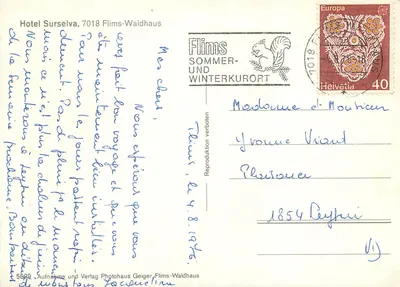 Hotel Surselva, 7018 Flims-Waldhaus
Flims
SOMMER-
UND
WINTERKURORT
7018
Europa
Helvetia 40
Mes chers,
Nous espérons que vous
avez fait bon voyage et que vous
êtes maintenant bien installés.
Pour nous les jours passent rapi-
dement. Pas de pluie pr le moment
mais ce n'est plus la chaleur de juin
Nous monterons à Leysin au début
de la semaine prochaine. Bons baisers
de nous tous Jacqueline
Flims, le 4.8.1976.
Madame et Monsieur
Yvonne
1854 Leysin
VD
Reproduktion verboten
Aufnahme und Verlag Photohaus Geiger, Flims-Waldhaus